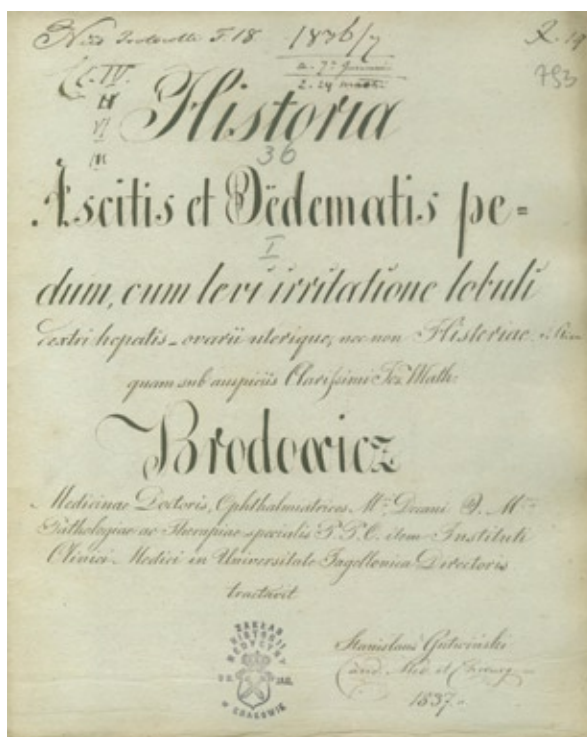 T. 18 1836/7
793
C. IV.
Historia
36
Ascitis et Oëdematis pe=
I
dum, cum levi irritatione lobuli
dextri hepatis _ ovarii uterique, nec non Historiae
quam sub auspiciis Clarissimi Jos. Math:
Brodowicz
Medicinae Doctoris, Ophthalmiatrices M. Decani
Pathologiae ac Therapiae specialis P. P. O. item Instituti
Clinici Medici in Universitate Jagellonica Directoris
tractavit
ZAKŁAD
HISTORII
MEDYCYNY
UN. JAG.
W KRAKOWIE
Stanislaus Gutwiński
Cand. Med. et Chirurg.
1837.